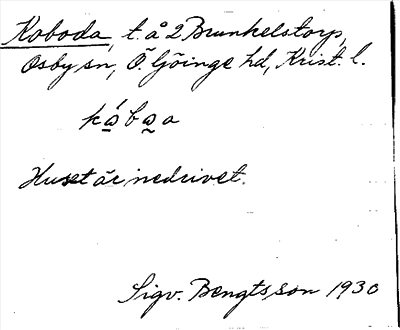 Koboda, t. å 2 Brunkelstorp,
Osby sn, Ö. Göinge hd, Krist. l.
kábaa
Huset är nedrivet.
Sigv. Bengtsson 1930